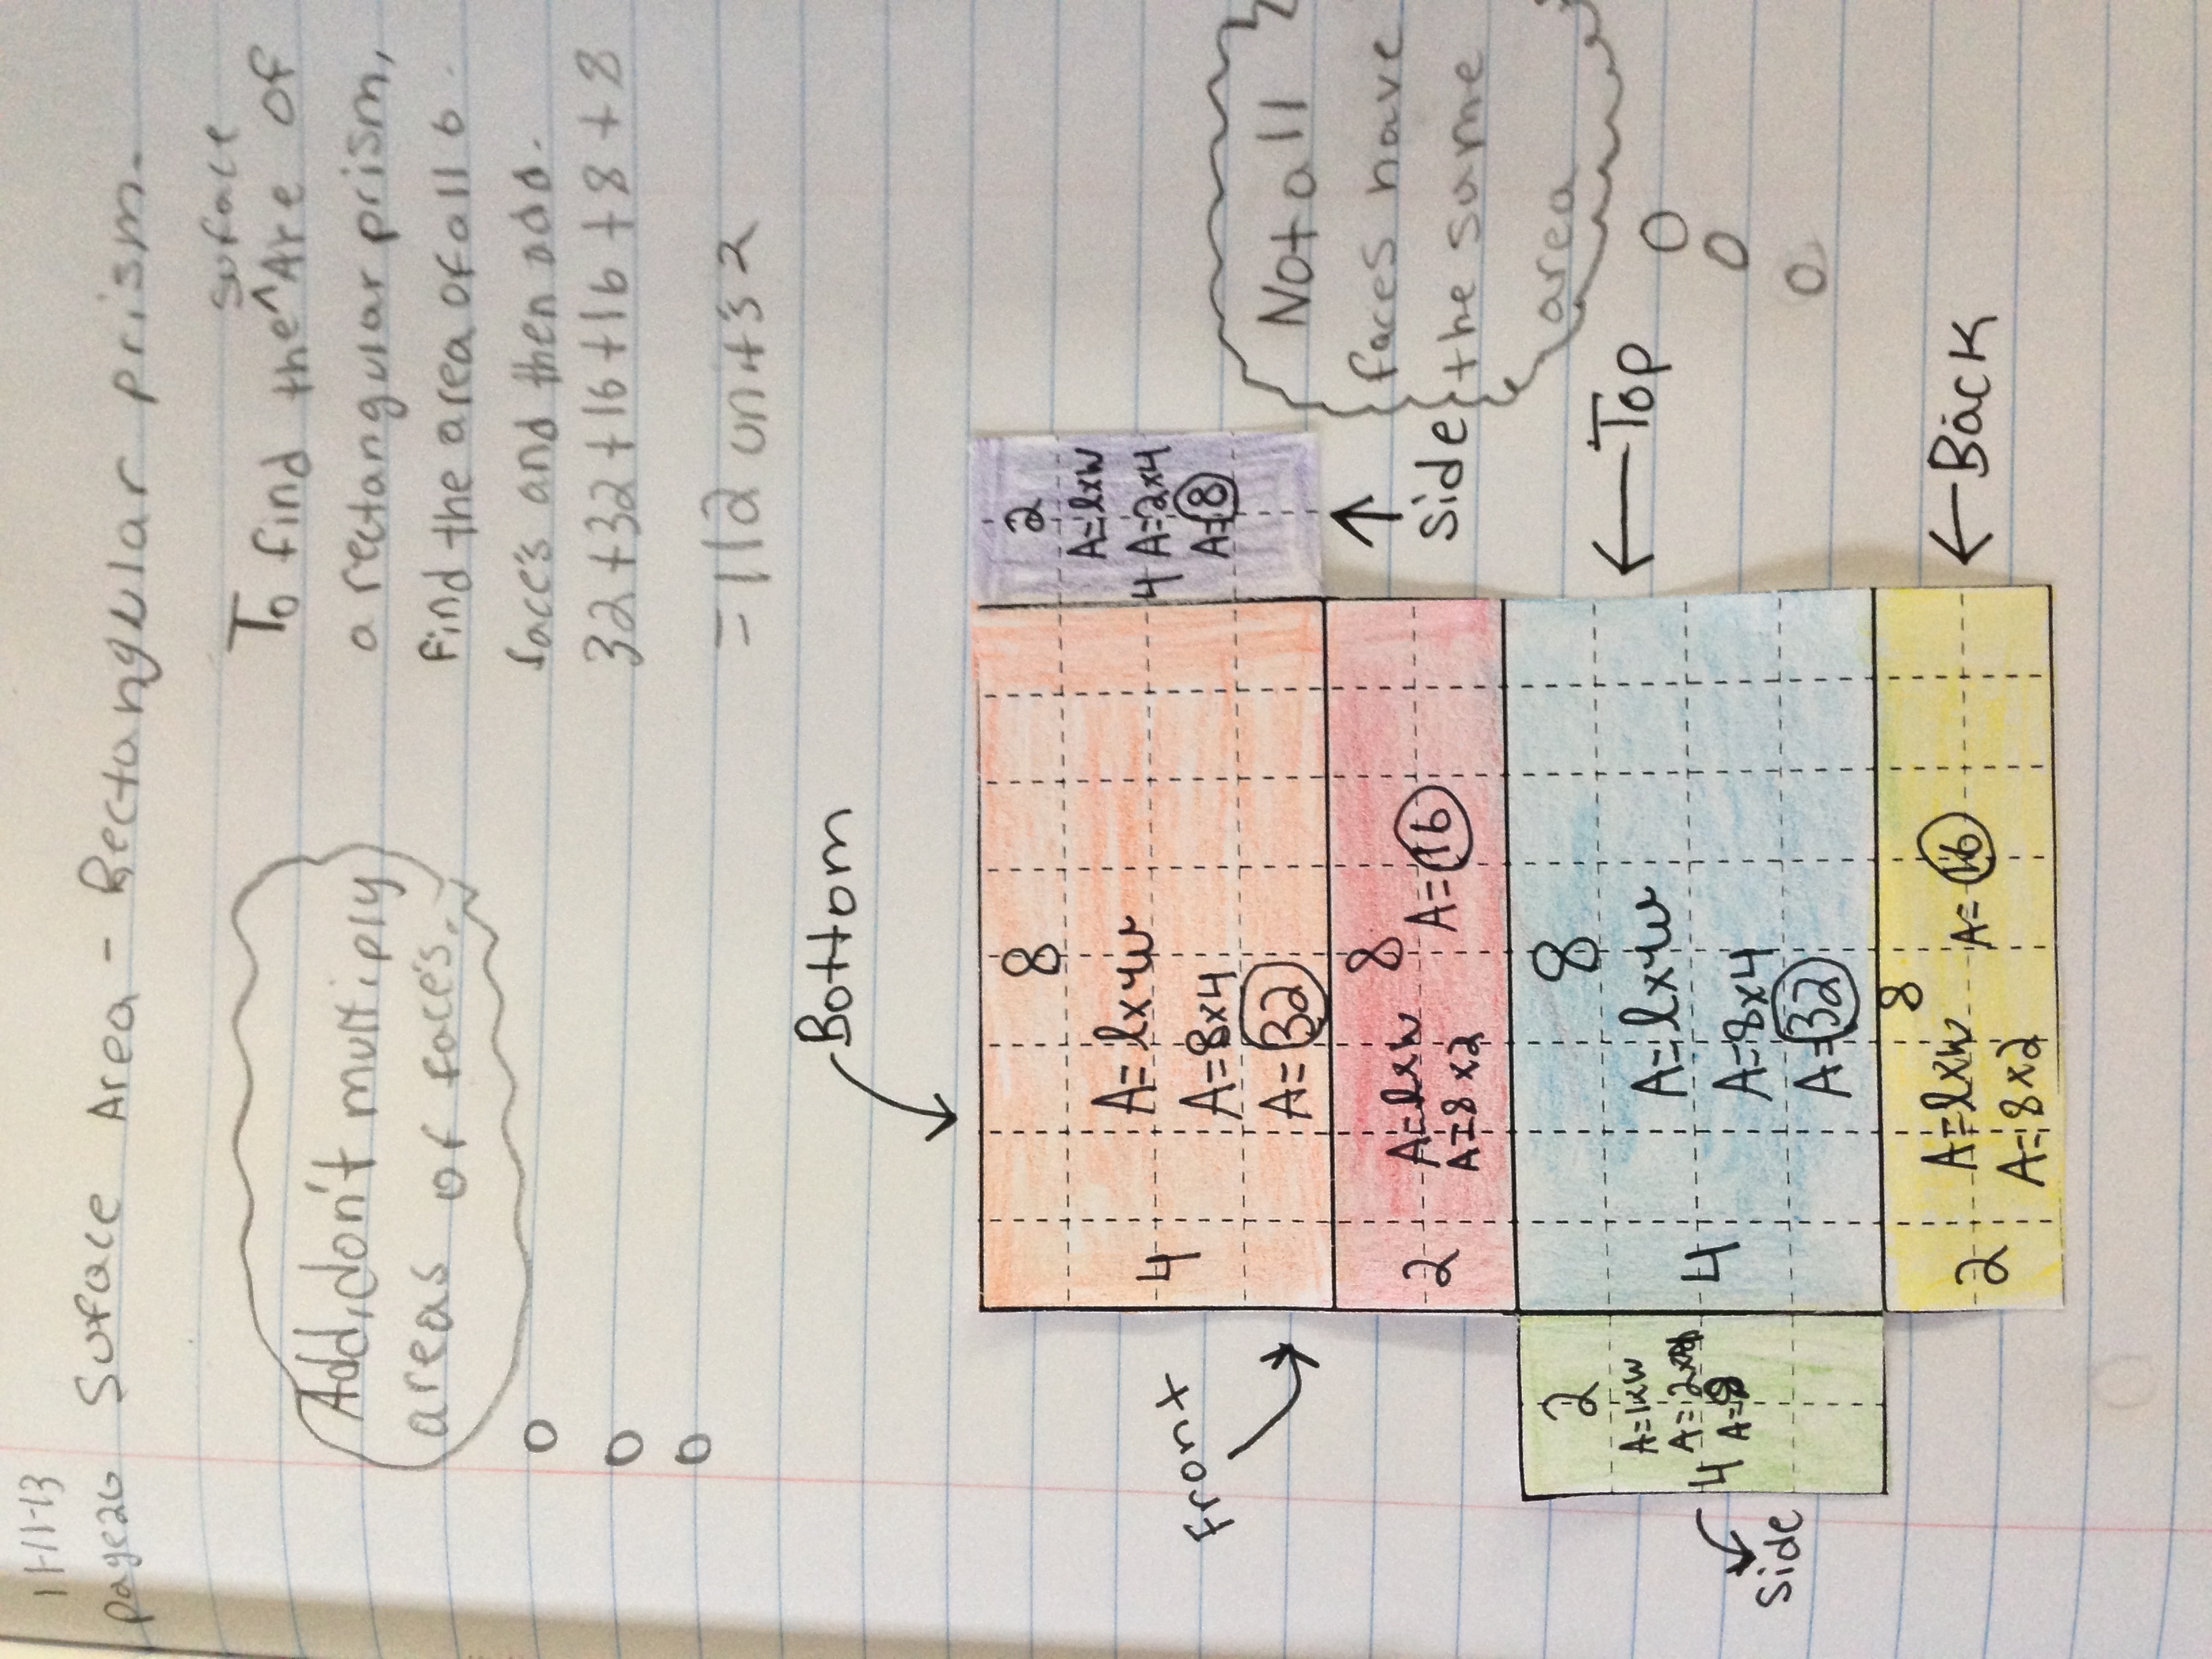 11-11-13
page26 Surface Area - Rectangular prism.
Add, don't multiply
areas of faces.
surface
To find the ^ Are of
a rectangular prism,
find the area of all 6
face's and then add.
32+32+16+16+8+8
=112 units 2
Bottom
8
A=lxw
4
A=8x4
A=32
2
A=lxw
4 A=2x4
A=8
Side
Front
8
A=lxw A=16
2 A=8x2
Not all
faces have
the same
area
8
A=lxw
4 A=8x4
A=32
Top
2
A=lxw
A=2x4
4 A=8
Side
8
A=lxw A=16
2 A=8x2
Back